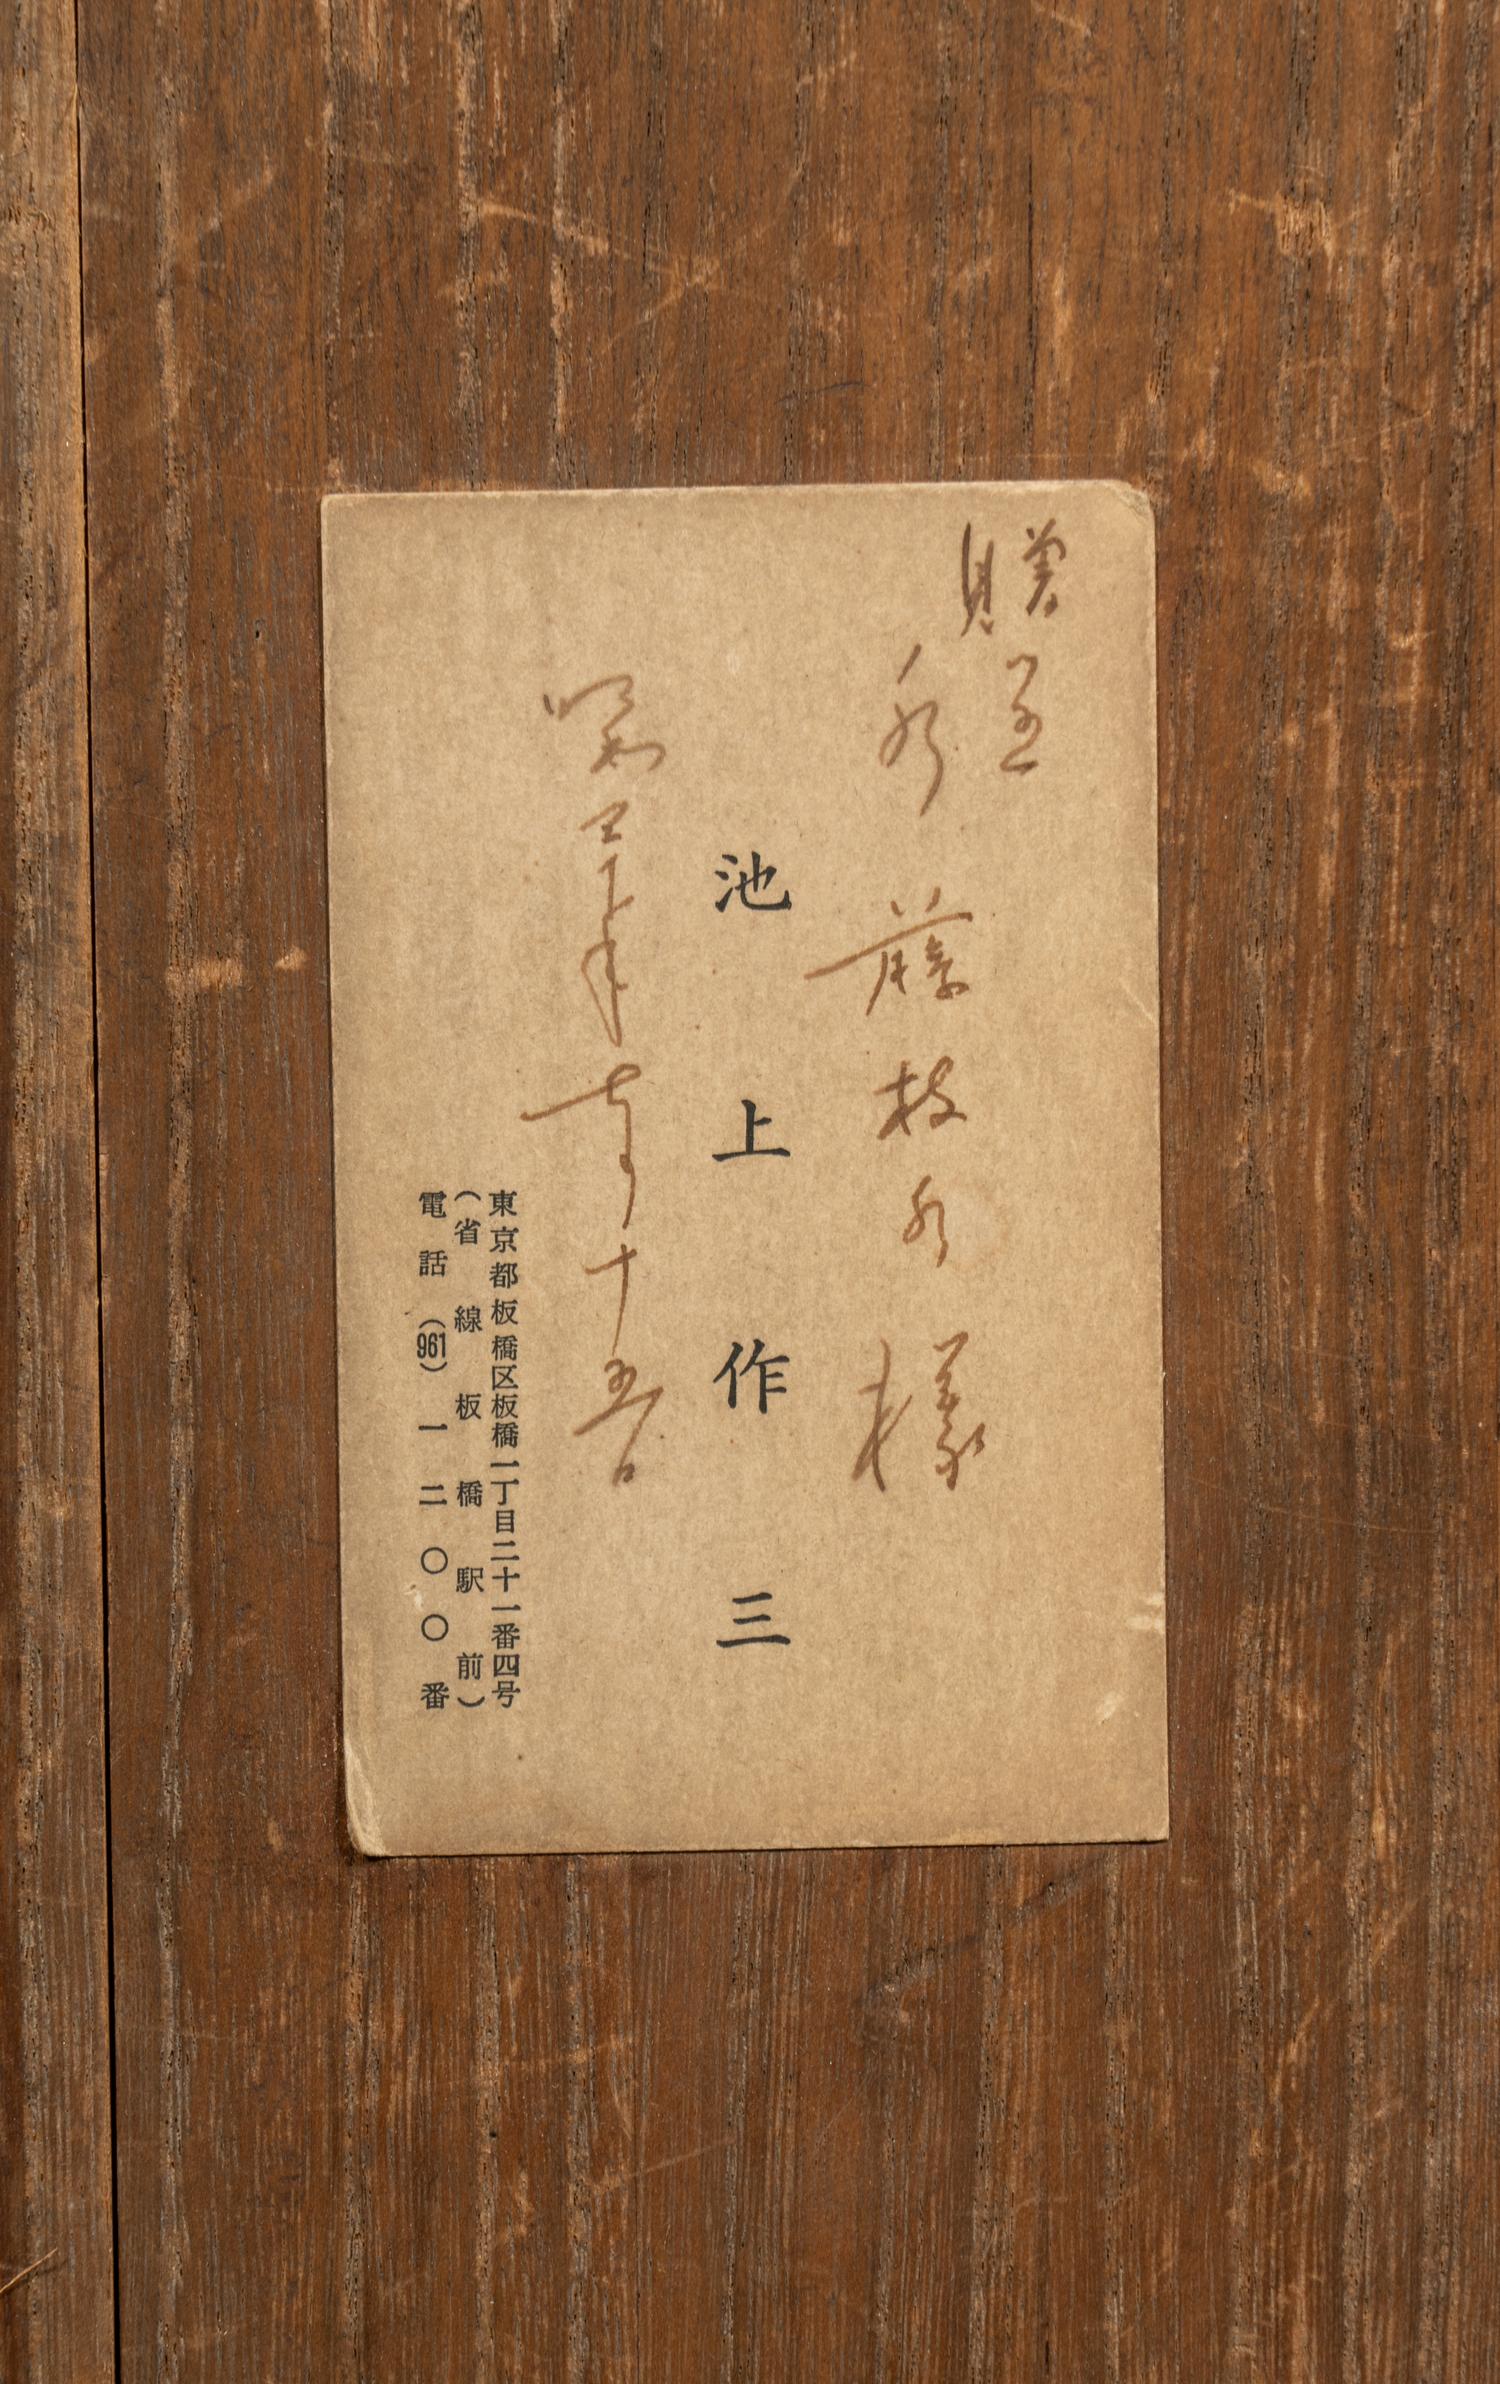 贈呈
藤枝様
池上作三
昭和四十年七月十五日
東京都板橋区板橋一丁目二十一番四号
(省線板橋駅前)
電話(961)一二〇〇番